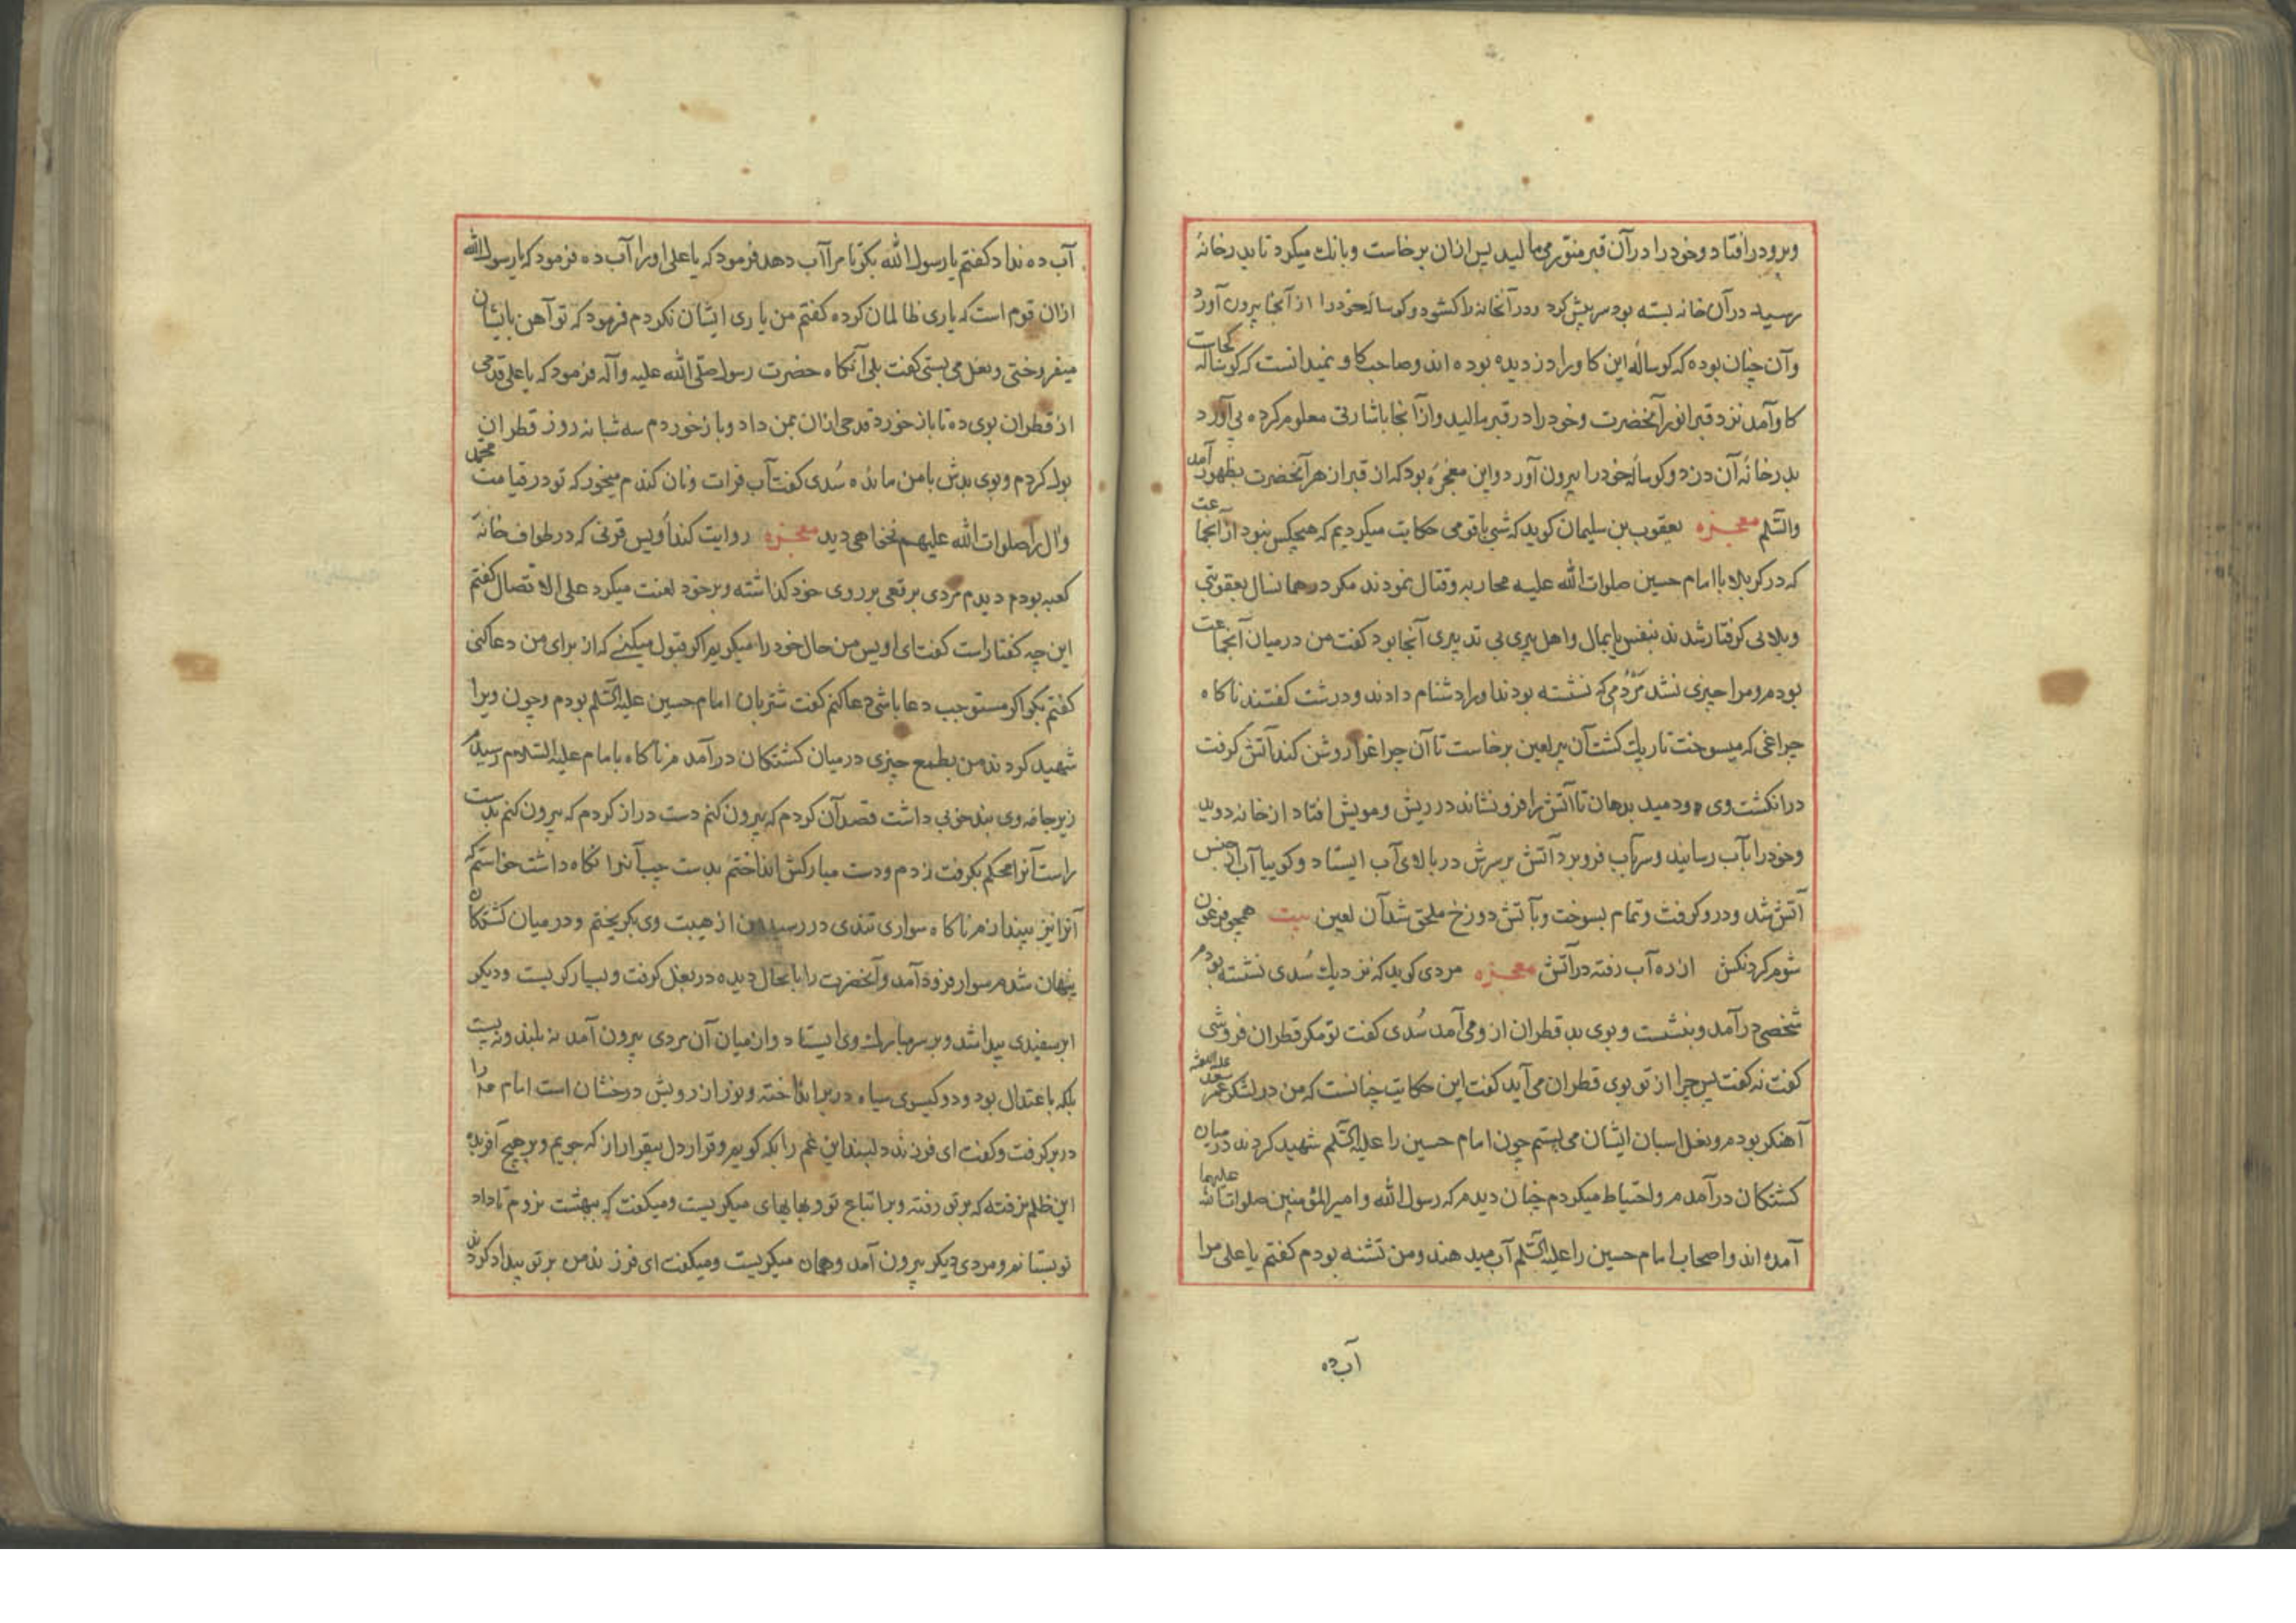 وبرو در افتاد و خود را در آن قبر منوّر می مالید پس ازان برخاست و بانك میکرد تا بدر خانهٔ
رسید در آن خانه بسته بود سر پیش کرد و در آنخانه را کشود و کوساله خود را از آنجا بیرون آورد
وآن چنان بوده که کوساله این کاو را دزدیده بوده اند و صاحب کاو نمیدانست که کوساله کجاست
کاو آمد نزد قبر انور آنحضرت و خود را در قبر مالید و از آنجا باشارتی معلوم کرده بی آورد
بدر خانهٔ آن دزد و کوساله خود را بیرون آورد و این معجزهٔ بود که از قبر از هر آنحضرت بظهور آمد
والسّلم معجـزه یعقوب بن سلیمان کوید که شبی باقومی حکایت میکردیم که هیچکس نبود از آنجماعت
که در کربلا با امام حسین صلوات الله علیه محاربه و قتال نمودند مکر در همانسال بعقوبتی
وبلائی کرفتار شدند بنفس یا بمال واهل پیری بی تدبیری آنجا بود کفت من در میان آنجماعت
بودم و مرا چیزی نشد مَرْدُمی که نشسته بودند او را دشنام دادند و درشت کفتند ناکاه
چراغی که میسوخت تاریك کشت آن پیر لعین برخاست تا آن چراغرا روشن کند آتش کرفت
در انکشت وی و دمید بدهان تا آتش را فرو نشاند در ریش و مویش افتاد از خانه دوید
وخود را بآب رسانید و سر بآب فرو برد آتش بر سرش در بالای آب ایستاد و کوییا آب از جنس
آتش شد و درو کرفت و تمام بسوخت و بآتش دوزخ ملحق شد آن لعین بیت همچو فرعون
شوم کردنکش از ره آب رفته در آتش معجـزه مردی کوید که نزدیك سُدی نشسته بودم
شخصی در آمد و بنشست و بوی بد قطران ازو می آمد سُدی کفت تو مکر قطران فروشی
کفت نه کفت پس چرا از تو بوی قطران می آید کفت این حکایت چنانست که من در لشکر عمر سعد علیه اللعنه
آهنکر بودم و نعل اسبان ایشان می بستم چون امام حسین را علیه السّلم شهید کردند در میان
کشتکان در آمدم و احتیاط میکردم چنان دیدم که رسول الله و امیر المؤمنین صلوات الله علیهما
آمده اند و اصحاب امام حسین را علیه السّلم آب میدهند و من تشنه بودم کفتم یا علی مرا
آب ده
آب ده نداد کفتم یا رسول الله بکو تا مرا آب دهد فرمود که یا علی او را آب ده فرمود که یا رسول الله
ازان قوم است که یاری ظالمان کرده کفتم من یاری ایشان نکردم فرمود که تو آهن بایشان
میفروختی و نعل می بستی کفت بلی آنکاه حضرت رسول صلّی الله علیه وآله فرمود که یا علی قدحی
از قطران بوی ده تا باز خورد قدحی ازان بمن داد و باز خوردم سه شبانه روز قطران
بول کردم و بوی بدش با من مانده سُدی کفت آب فرات و نان کندم میخور که تو در قیامت محمّد
وآل را صلوات الله علیهم نخواهی دید معجـزه روایت کند اُویس قرنی که در طواف خانهٔ
کعبه بودم دیدم مردی برقعی بر روی خود کذاشته و بر خود لعنت میکرد علی الاتصال کفتم
این چه کفتار است کفت ای اویس من حال خود را میکویم اکر قبول میکنی که از برای من دعا کنی
کفتم بکو اکر مستوجب دعا باشی دعا کنم کفت شتربان امام حسین علیه السّلم بودم و چون ویرا
شهید کردند من بطمع چیزی در میان کشتکان در آمدم ناکاه بامام علیه السّلام رسیدم
زیر جامهٔ وی بند خوبی داشت قصد آن کردم که بیرون کنم دست دراز کردم که بیرون کنم بدست
راست آنرا محکم بکرفت زدم و دست مبارکش انداختم بدست چپ آنرا نکاه داشت خواستم که
آنرا نیز بیندازم ناکاه سواری تندی در رسید من از هیبت وی بکریختم و در میان کشتکان
پنهان شدم سوار فرود آمد و آنحضرت را بانحال دیده در بغل کرفت و بسیار کریست و دیکر
ابر سفیدی پیدا شد و بر سر مبارك وی ایستاد و از میان آن مردی بیرون آمد نه بلند و نه پست
بلکه باعتدال بود و دو کیسوی سیاه در بر انداخته و نور از رویش درخشان است امام را
در بر کرفت و کفت ای فرزند دلبند این غم را بکه کویم و قرار دل بیقرار از که جویم و بر هیچ آفریده
این ظلم نرفته که بر تو رفته و بر اتباع تو و بهایهای میکریست و میکفت که ببهشت نروم تا داد
تو بستانم و مردی دیکر بیرون آمد و همان میکریست و میکفت ای فرزند من بر تو بیداد کردند